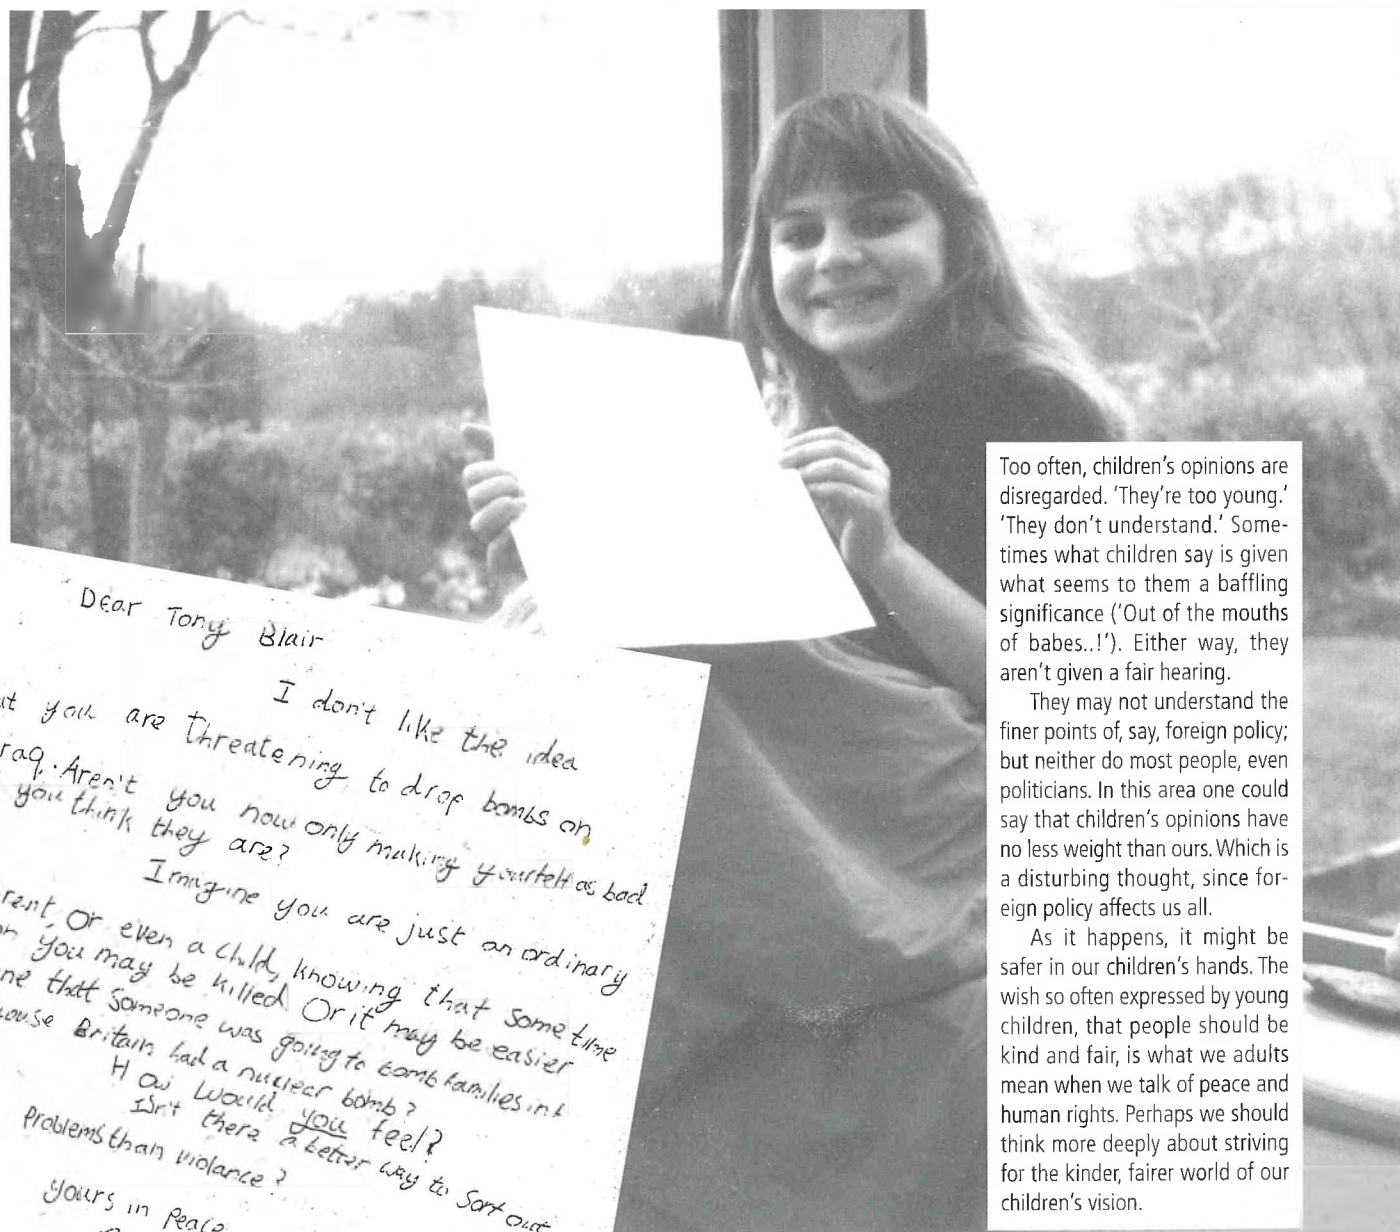 Dear Tony Blair
I don't like the idea
you are threatening to drop bombs on
raq. Aren't you now only making yourself as bad
you think they are?
Imagine you are just an ordinary
rent, Or even a child, knowing that some time
you may be killed Or it may be easier
that someone was going to bomb families in
Britain had a nuclear bomb?
How would you feel?
Isn't there a better way to sort out
Problems than violance?
yours in Peace
Too often, children's opinions are
disregarded. 'They're too young.'
'They don't understand.' Some-
times what children say is given
what seems to them a baffling
significance ('Out of the mouths
of babes..!'). Either way, they
aren't given a fair hearing.
They may not understand the
finer points of, say, foreign policy;
but neither do most people, even
politicians. In this area one could
say that children's opinions have
no less weight than ours. Which is
a disturbing thought, since for-
eign policy affects us all.
As it happens, it might be
safer in our children's hands. The
wish so often expressed by young
children, that people should be
kind and fair, is what we adults
mean when we talk of peace and
human rights. Perhaps we should
think more deeply about striving
for the kinder, fairer world of our
children's vision.